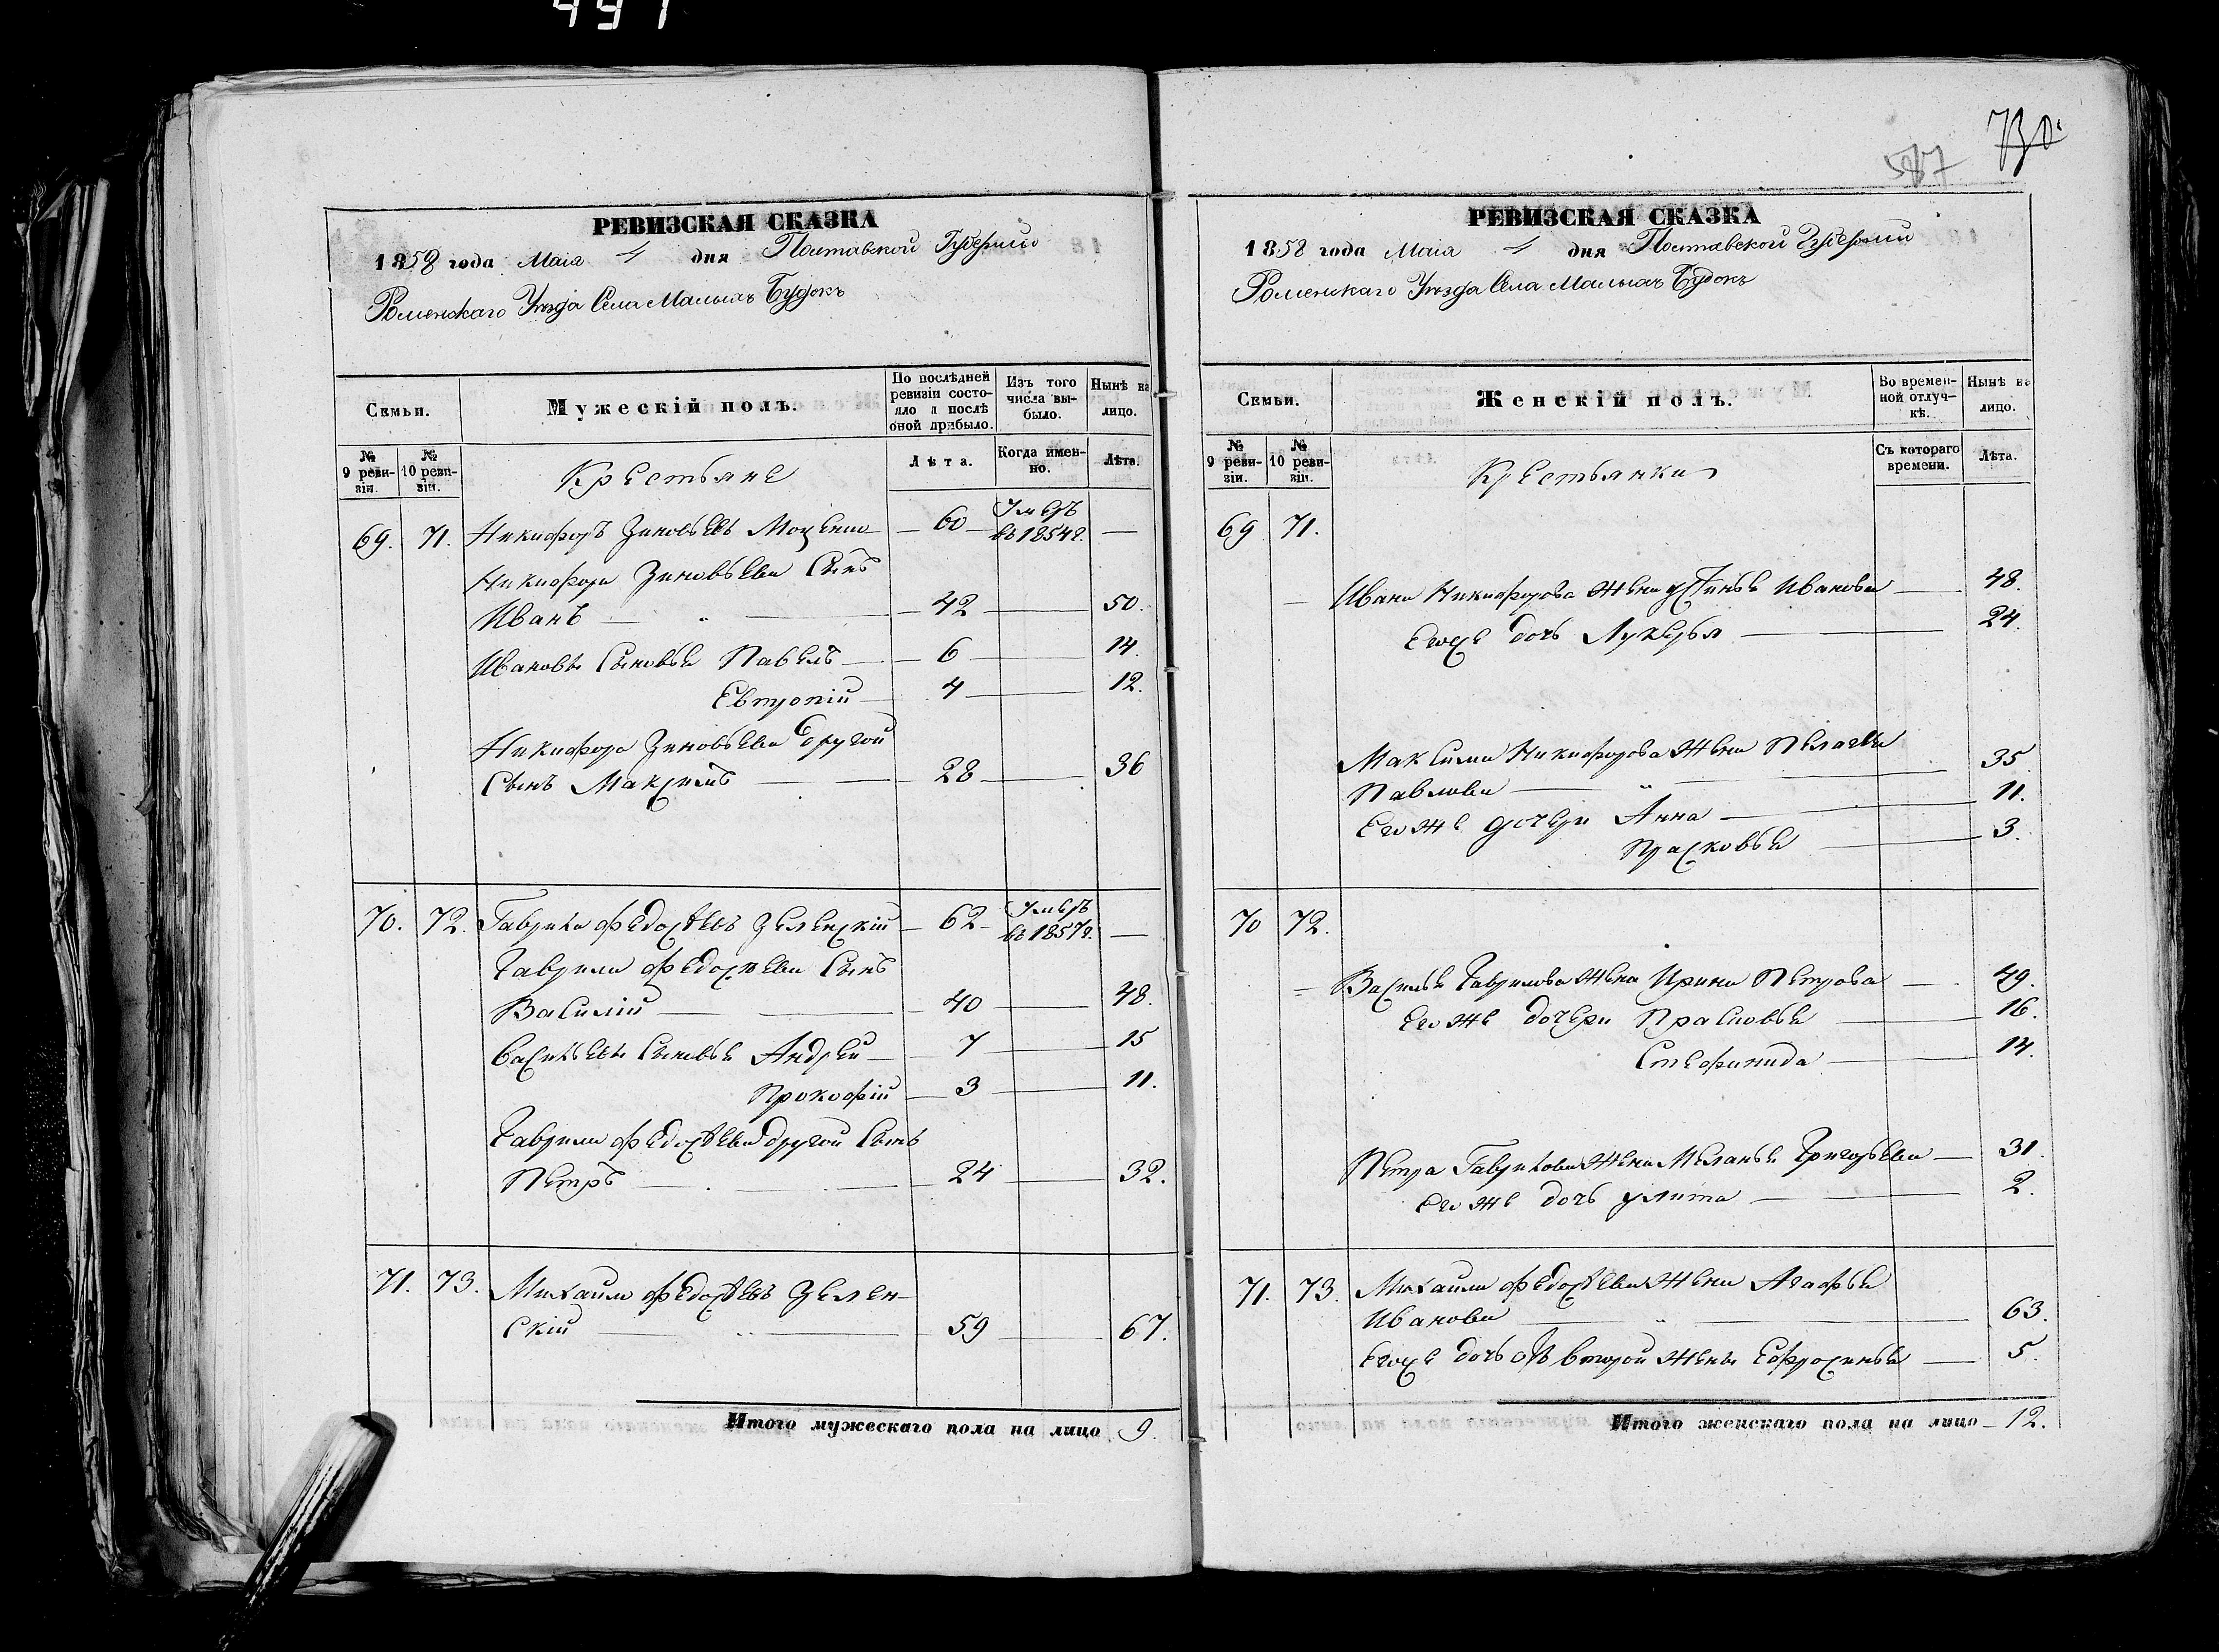 491
РЕВИЗСКАЯ СКАЗКА
1858 года Маія 4 дня Полтавской Губерніи
Роменскаго Уѣзда Села Малыхъ Будокъ
Семьи.
Мужескій полъ.
По послѣдней ревизіи состояло и послѣ оной прибыло.
Изъ того числа выбыло.
Нынѣ на лицо.
№ 9 ревизіи.
№ 10 ревизіи.
Крестьяне
Лѣта.
Когда именно.
Лѣта.
69. 71. Никифоръ Зиновьевъ — 60 — Умеръ въ 1854 г. —
Никифора Зиновьева Сынъ
Иванъ — 42 — 50.
Ивановы Сыновья Павелъ — 6 — 14.
Евтропій — 4 — 12.
Никифора Зиновьева другой
Сынъ Максимъ — 28 — 36
70. 72. Гаврила Федосѣевъ Зеленскій — 62 — Умеръ въ 1857 г. —
Гаврила Федосѣева Сынъ
Василій — 40 — 48.
Васильевы Сыновья Андрей — 7 — 15
Прокофій — 3 — 11.
Гаврила Федосѣева другой Сынъ
Петръ — 24 — 32.
71. 73. Михаила Федосѣевъ Зелен-
скій — 59 — 67.
Итого мужескаго пола на лицо 9.
587 730.
РЕВИЗСКАЯ СКАЗКА
1858 года Маія 4 дня Полтавской Губерніи
Роменскаго Уѣзда Села Малыхъ Будокъ
Семьи.
Женскій полъ.
Во временной отлучкѣ.
Нынѣ на лицо.
№ 9 ревизіи.
№ 10 ревизіи.
Крестьянки
Съ котораго времени.
Лѣта.
69 71.
Ивана Никифорова жена Устинья Иванова — 48.
Егоже дочь Лукерья — 24.
Максима Никифорова Жена Пелагея
Павлова — 35
Егоже дочери Анна — 11.
Прасковья — 3.
70 72.
Василья Гаврилова Жена Ирина Петрова — 49.
Егоже дочери Прасковья — 16.
Стефанида — 14.
Петра Гаврилова Жена Меланья Григорьева — 31.
Егоже дочь Улита — 2.
71. 73. Михаила Федосѣева Жена Агафья
Иванова — 63.
Егоже дочь отъ второй Жены Ефросинья — 5.
Итого женскаго пола на лицо — 12.